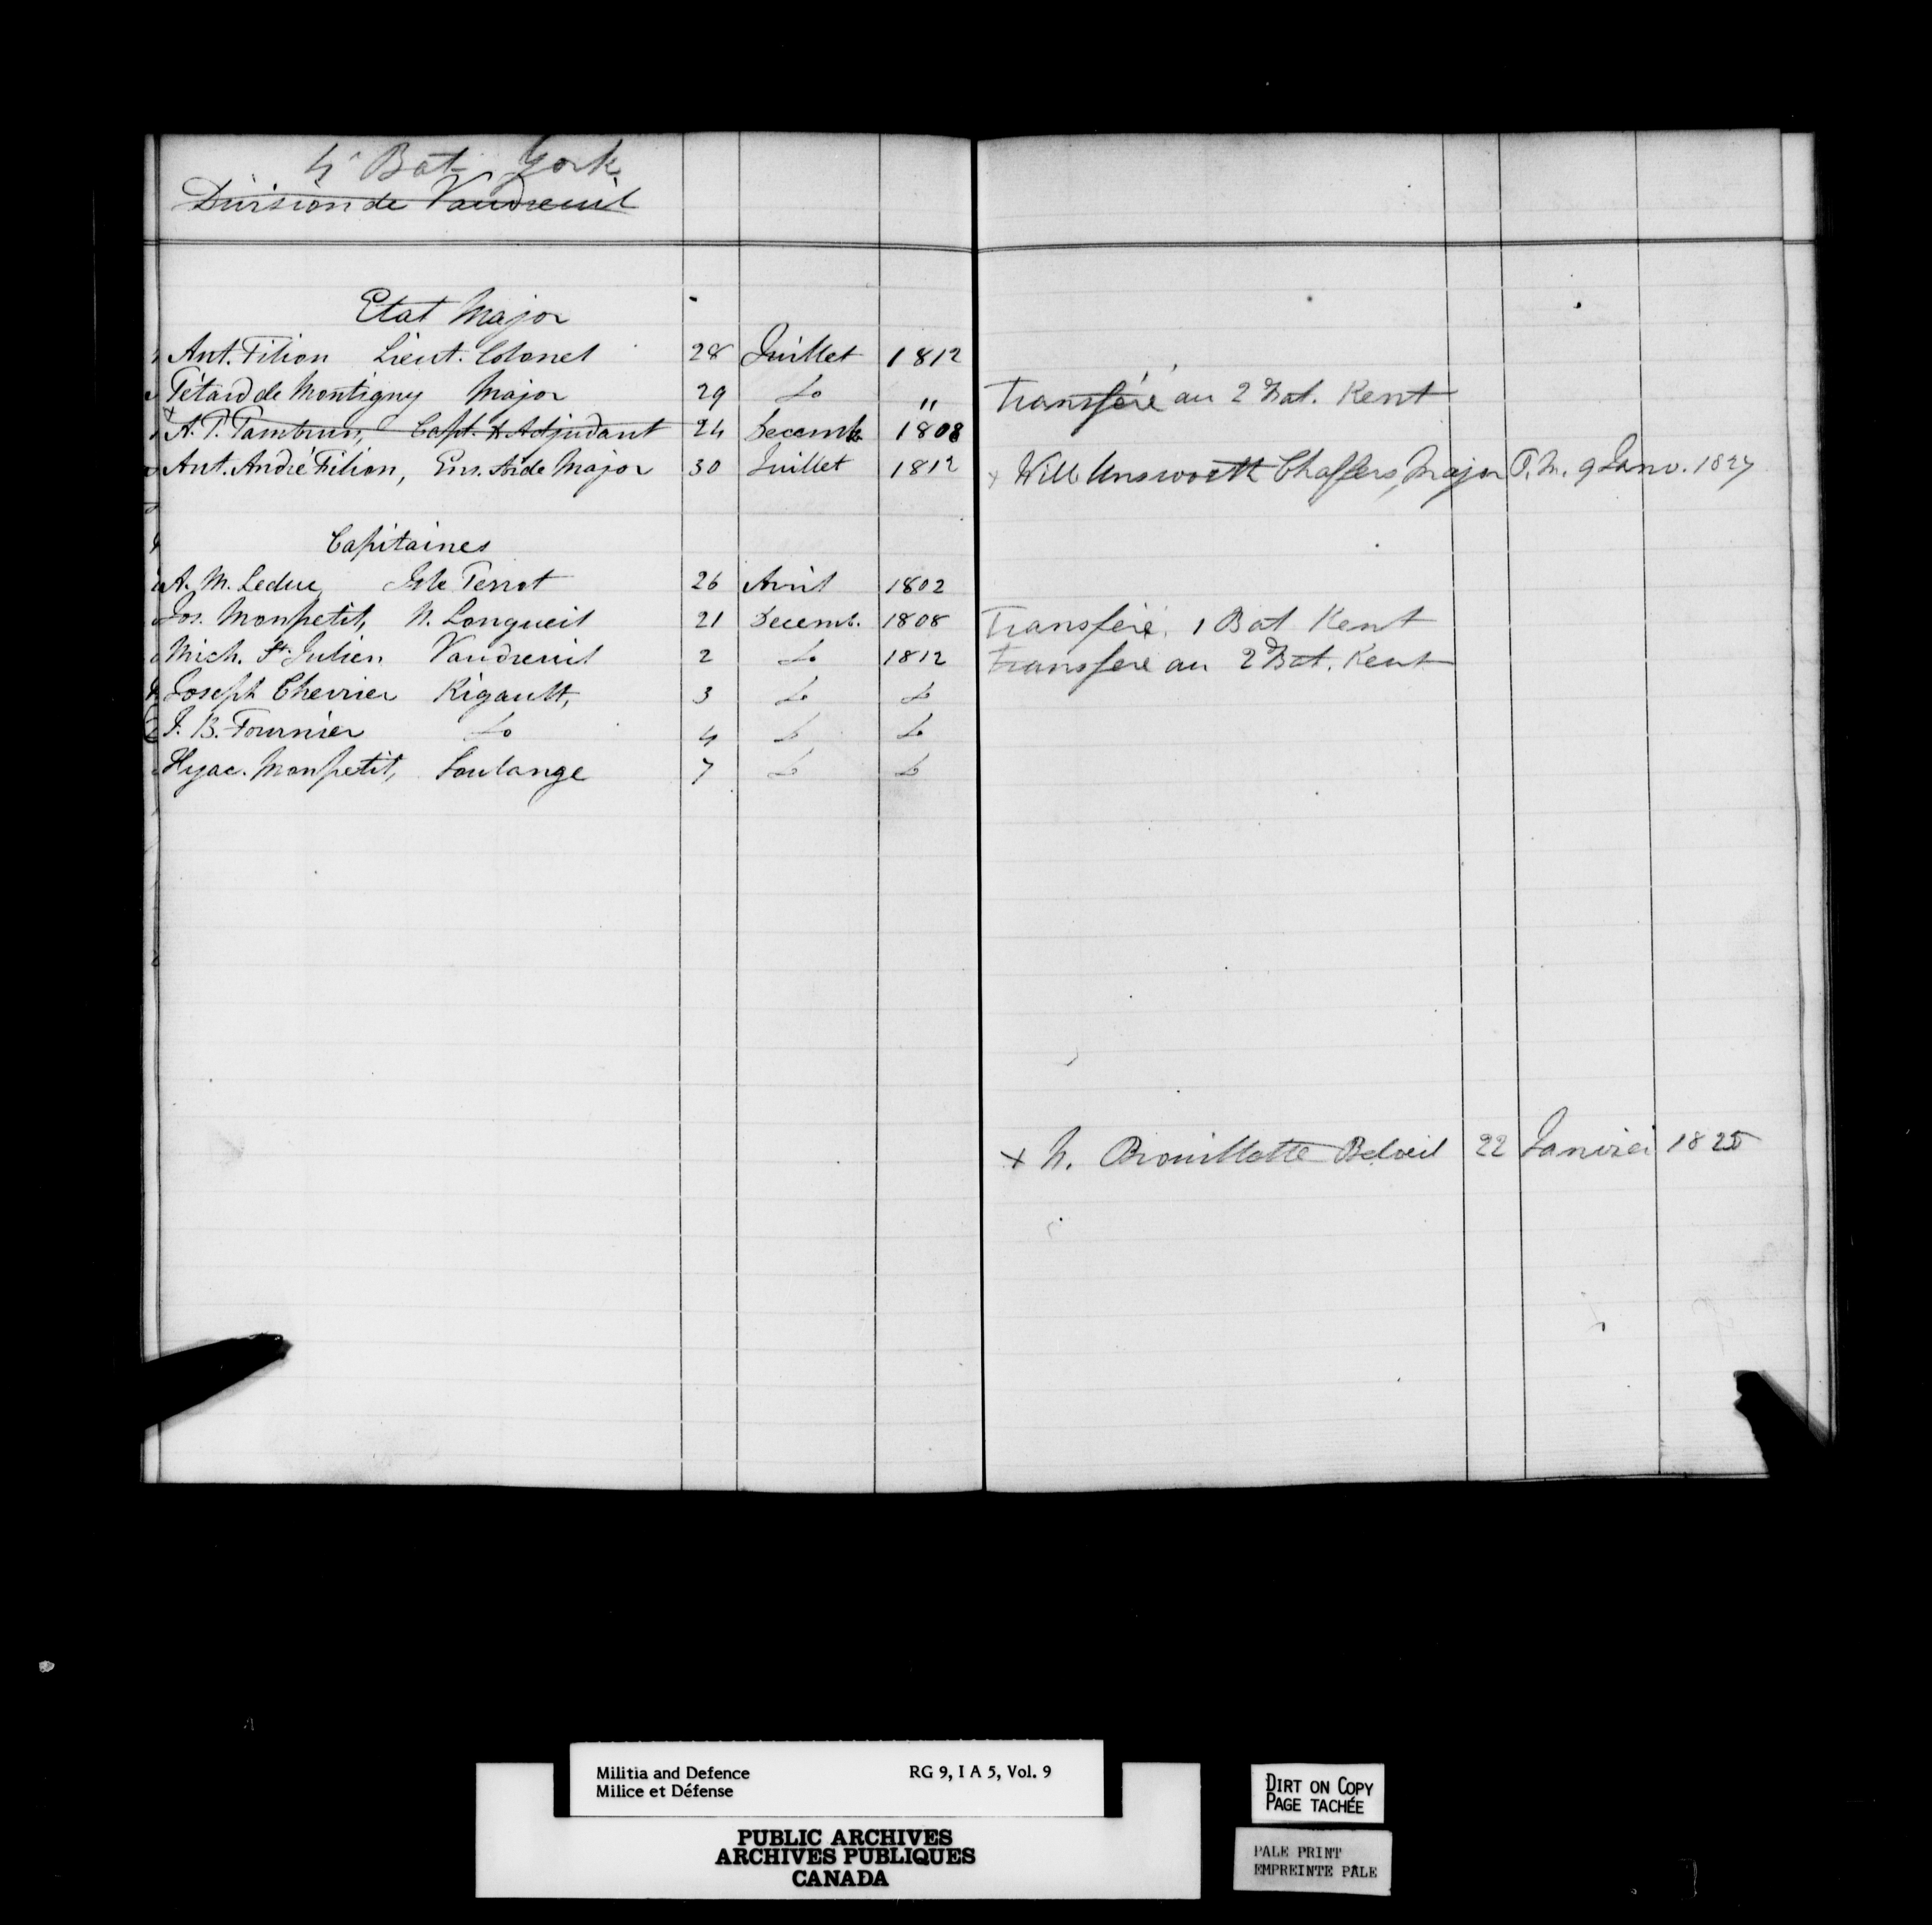 4e Bat York
Division de Vaudreuil
Etat Major
Ant. Filion Lieut. Colonel 28 Juillet 1812
Tétard de Montigny Major 29 Do " Transféré au 2d Bat. Kent
A. P. Tambrun, Capt. & Adjudant 24 Decemb. 1808
Ant. André Filion, Ens. Aide Major 30 Juillet 1812 x Will Unsworth Chaffers, Major P. M. 9 Janv. 1827
Capitaines
A. M. Leduc Isle Perrot 26 Avril 1802
Jos. Monpetit, N. Longueil 21 Decemb. 1808 Transféré 1 Bat Kent
Mich. St. Julien Vaudreuil 2 Do 1812 Transféré au 2d Bat. Kent
Joseph Chevrier Rigault, 3 Do Do
J. B. Fournier Do 4 Do Do
Hyac. Monpetit, Soulange 7 Do Do
x N. Brouillette Beloeil 22 Janvier 1825
Militia and Defence RG 9, I A 5, Vol. 9
Milice et Défense
PUBLIC ARCHIVES
ARCHIVES PUBLIQUES
CANADA
DIRT ON COPY
PAGE TACHÉE
PALE PRINT
EMPREINTE PÂLE